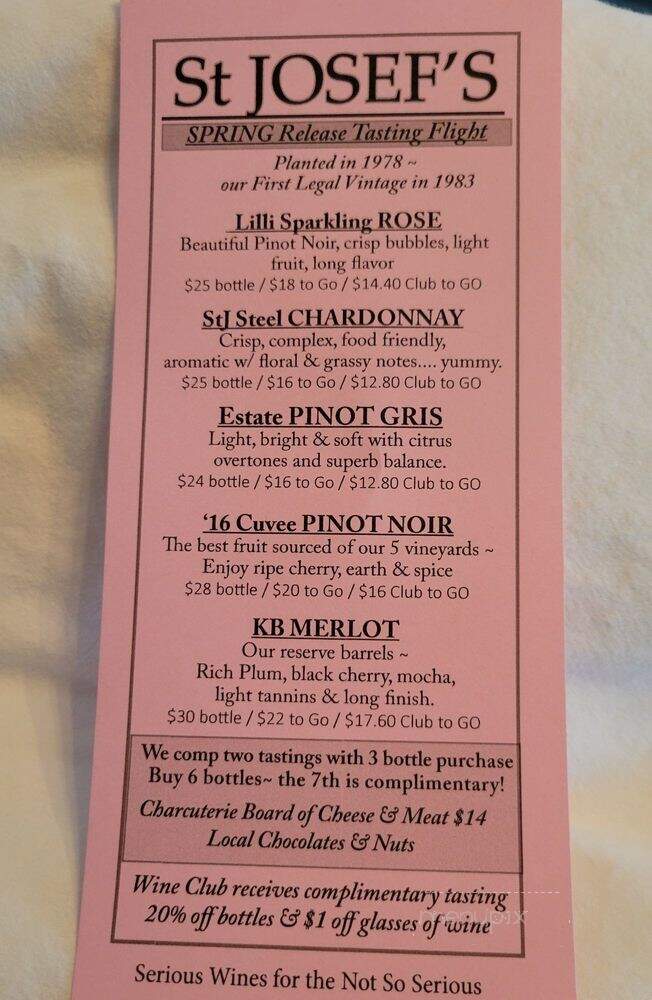 St JOSEF'S
SPRING Release Tasting Flight
Planted in 1978 ~
our First Legal Vintage in 1983
Lilli Sparkling ROSE
Beautiful Pinot Noir, crisp bubbles, light
fruit, long flavor
$25 bottle / $18 to Go / $14.40 Club to GO
StJ Steel CHARDONNAY
Crisp, complex, food friendly,
aromatic w/ floral & grassy notes.... yummy.
$25 bottle / $16 to Go / $12.80 Club to GO
Estate PINOT GRIS
Light, bright & soft with citrus
overtones and superb balance.
$24 bottle / $16 to Go / $12.80 Club to GO
'16 Cuvee PINOT NOIR
The best fruit sourced of our 5 vineyards ~
Enjoy ripe cherry, earth & spice
$28 bottle / $20 to Go / $16 Club to GO
KB MERLOT
Our reserve barrels ~
Rich Plum, black cherry, mocha,
light tannins & long finish.
$30 bottle / $22 to Go / $17.60 Club to GO
We comp two tastings with 3 bottle purchase
Buy 6 bottles~ the 7th is complimentary!
Charcuterie Board of Cheese & Meat $14
Local Chocolates & Nuts
Wine Club receives complimentary tasting
20% off bottles & $1 off glasses of wine
Serious Wines for the Not So Serious